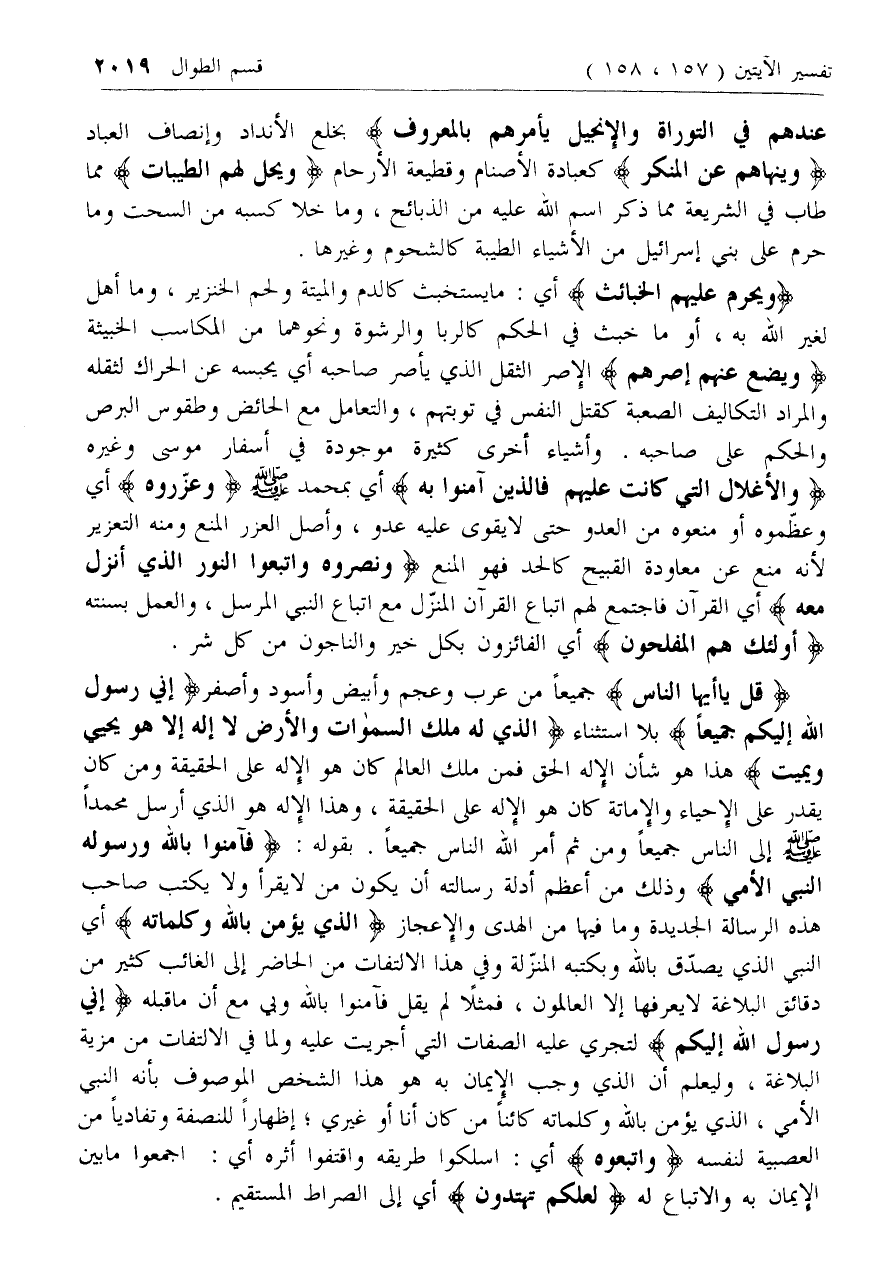 تفسير الآيتين ( ١٥٧ ، ١٥٨ ) قسم الطوال ٢٠١٩
عندهم في التوراة والإنجيل يأمرهم بالمعروف ﴾ بخلع الأنداد وإنصاف العباد
﴿ وينهاهم عن المنكر ﴾ كعبادة الأصنام وقطيعة الأرحام ﴿ ويحل لهم الطيبات ﴾ مما
طاب في الشريعة مما ذكر اسم الله عليه من الذبائح ، وما خلا كسبه من السحت وما
حرم على بني إسرائيل من الأشياء الطيبة كالشحوم وغيرها .
﴿ويحرم عليهم الخبائث ﴾ أي : مايستخبث كالدم والميتة ولحم الخنزير ، وما أهل
لغير الله به ، أو ما خبث في الحكم كالربا والرشوة ونحوهما من المكاسب الخبيثة
﴿ ويضع عنهم إصرهم ﴾ الإصر الثقل الذي يأصر صاحبه أي يحبسه عن الحراك لثقله
والمراد التكاليف الصعبة كقتل النفس في توبتهم ، والتعامل مع الحائض وطقوس البرص
والحكم على صاحبه . وأشياء أخرى كثيرة موجودة في أسفار موسى وغيره
﴿ والأغلال التي كانت عليهم فالذين آمنوا به ﴾ أي بمحمد ﷺ ﴿ وعزّروه ﴾ أي
وعظّموه أو منعوه من العدو حتى لايقوى عليه عدو ، وأصل العزر المنع ومنه التعزير
لأنه منع عن معاودة القبيح كالحد فهو المنع ﴿ ونصروه واتبعوا النور الذي أنزل
معه ﴾ أي القرآن فاجتمع لهم اتباع القرآن المنزّل مع اتباع النبي المرسل ، والعمل بسنته
﴿ أولئك هم المفلحون ﴾ أي الفائزون بكل خير والناجون من كل شر .
﴿ قل ياأيها الناس ﴾ جميعاً من عرب وعجم وأبيض وأسود وأصفر﴿ إني رسول
الله إليكم جميعاً ﴾ بلا استثناء ﴿ الذي له ملك السمٰوات والأرض لا إله إلا هو يحيي
ويميت ﴾ هذا هو شأن الإله الحق فمن ملك العالم كان هو الإله على الحقيقة ومن كان
يقدر على الإحياء والإماتة كان هو الإله على الحقيقة ، وهذا الإله هو الذي أرسل محمداً
ﷺ إلى الناس جميعاً ومن ثم أمر الله الناس جميعاً . بقوله : ﴿ فآمنوا بالله ورسوله
النبي الأمي ﴾ وذلك من أعظم أدلة رسالته أن يكون من لايقرأ ولا يكتب صاحب
هذه الرسالة الجديدة وما فيها من الهدى والإعجاز ﴿ الذي يؤمن بالله وكلماته ﴾ أي
النبي الذي يصدّق بالله وبكتبه المنزّلة وفي هذا الالتفات من الحاضر إلى الغائب كثير من
دقائق البلاغة لايعرفها إلا العالمون ، فمثلًا لم يقل فآمنوا بالله وبي مع أن ماقبله ﴿ إني
رسول الله إليكم ﴾ لتجري عليه الصفات التي أجريت عليه ولما في الالتفات من مزية
البلاغة ، وليعلم أن الذي وجب الإيمان به هو هذا الشخص الموصوف بأنه النبي
الأمي ، الذي يؤمن بالله وكلماته كائناً من كان أنا أو غيري ؛ إظهاراً للنصفة وتفادياً من
العصبية لنفسه ﴿ واتبعوه ﴾ أي : اسلكوا طريقه واقتفوا أثره أي : اجمعوا مابين
الإيمان به والاتباع له ﴿ لعلكم تهتدون ﴾ أي إلى الصراط المستقيم .